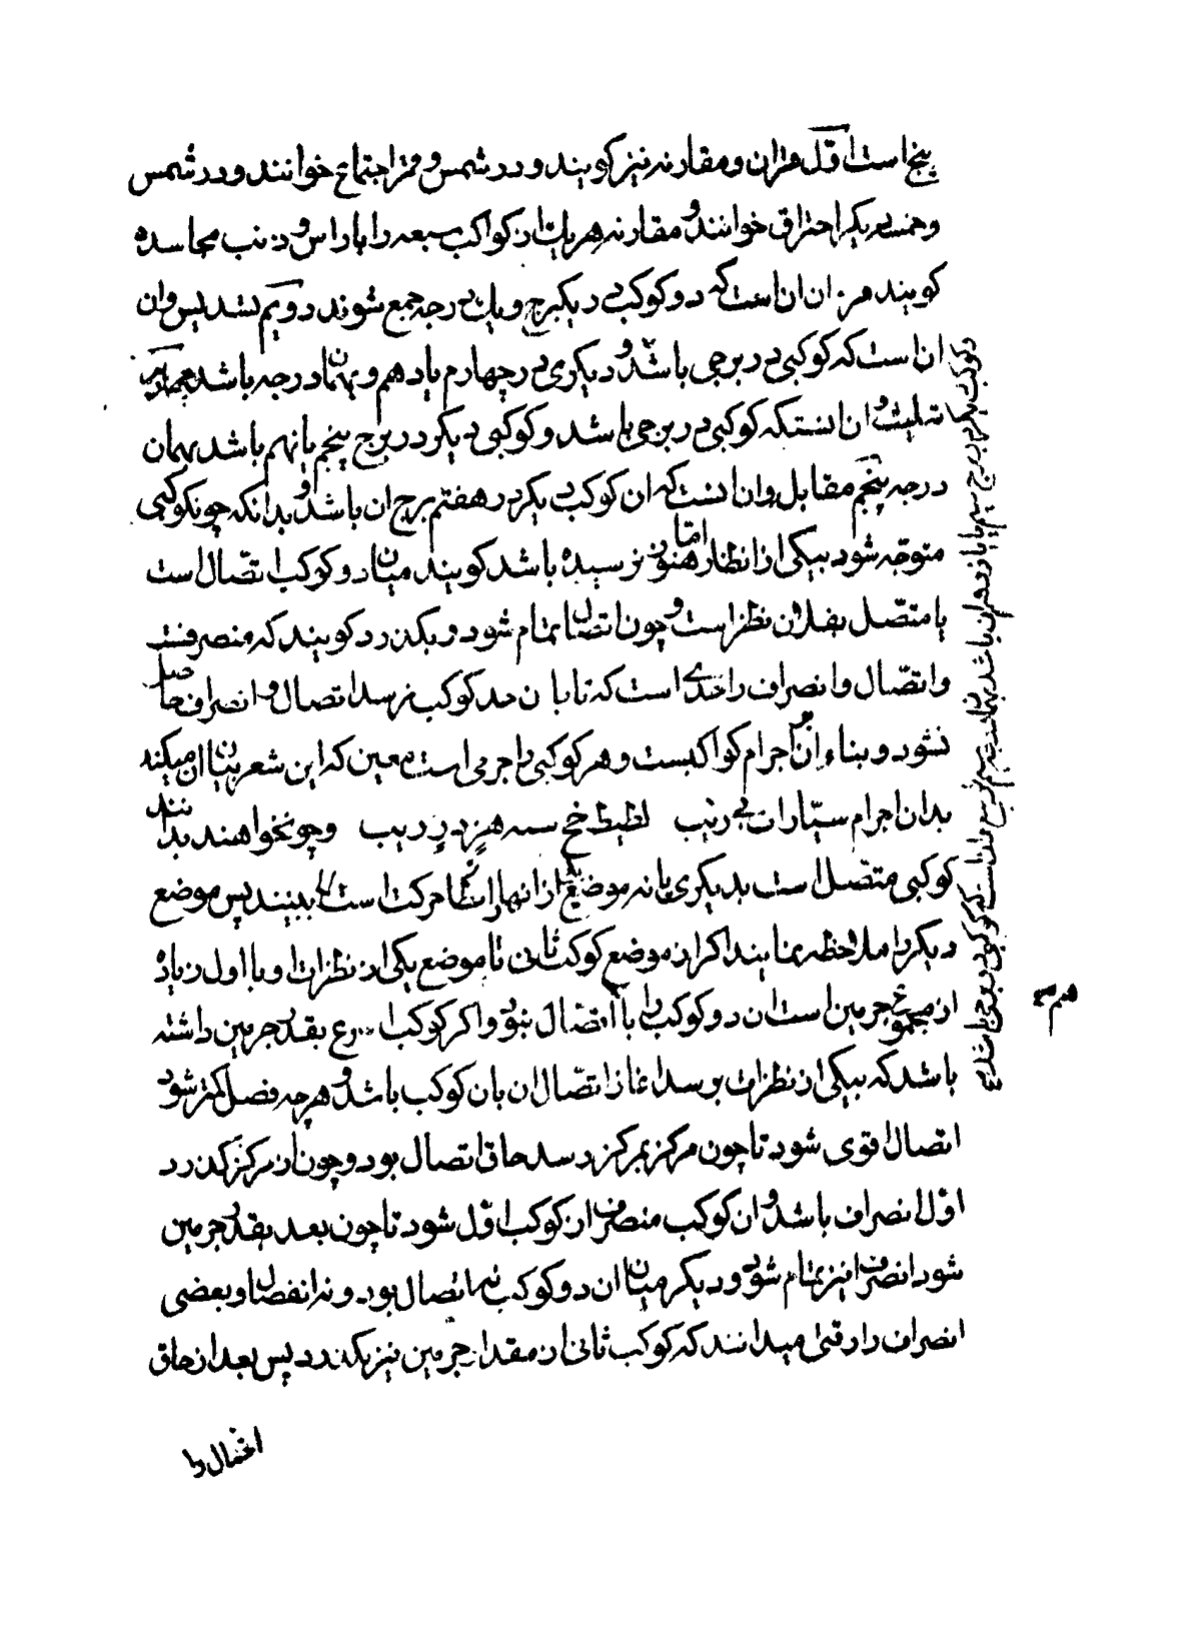 پنج است اول قران و مقارنه نیز کویند و در شمس و قمر اجتماع خوانند و در شمس
و خمسه دیکر احتراق خوانند و مقارنه هر یک از کواکب سبعه را با راس و ذنب مجاسده
کویند قران ان است که دو کوکب در یکبرج و یک درجه جمع شوند دویم تسدیس وان
ان است که کوکبی در برجی باشد و دیکری در چهارم یا دهم و بهمان درجه باشد چهارم
تثلیث و ان انستکه کوکبی در برجی باشد و کوکبی دیکر در برج پنجم یا نهم باشد بهمان
درجه پنجم مقابله وان انست که ان کوکب دیکر در هفتم برج ان باشد و بدانکه چون کوکبی
متوجه شود بیکی از انظار اما هنوز نرسیده باشد کویند میان دو کوکب اتصال است
یا متصل بفلان نظر است و چون اتصال تمام شود و بکذرد کویند که منصرفست
و اتصال و انصراف را حدی است که تا با ن حد کوکب نرسد اتصال و انصراف حاصل
نشود و بناء ان بر اجرام کواکبست و هر کوکبی را جرمی است معین که این شعر بیان ان میکند
بدان اجرام سیارات بی ریب لظیط خح سه هز د ز ریب و چون خواهند بدانند
کوکبی متصل است بدیکری یا نه موضع یکی از انها را نظام حرکت است تا ببینند پس موضع
دیکر را ملاحظه نمایند اکر از موضع کوکب ثانی تا موضع یکی از نظرات او با اول زیاده
از مجموع جرمین است ان دو کوکب را با هم اتصال نبود و اکر کوکب اسرع بقدر جرمین داشته
باشد که بیکی از نظرات برسد اغاز اتصال ان بان کوکب باشد و هر چه فصل کمتر شود
اتصال اقوی شود تا چون مرکز بمرکز رسد حاق اتصال بود و چون از مرکز کذرد
اول انصراف باشد و ان کوکب منصرف از کوکب اول شود تا چون بعد بقدر جرمین
شود انصراف نیز تمام شود و دیکر میان ان دو کوکب نه اتصال بود و نه انفصال و بعضی
انصراف را وقتی میدانند که کوکب ثانی از مقدار جرمین نیز بکذرد پس بعد از حاق
اتصال را